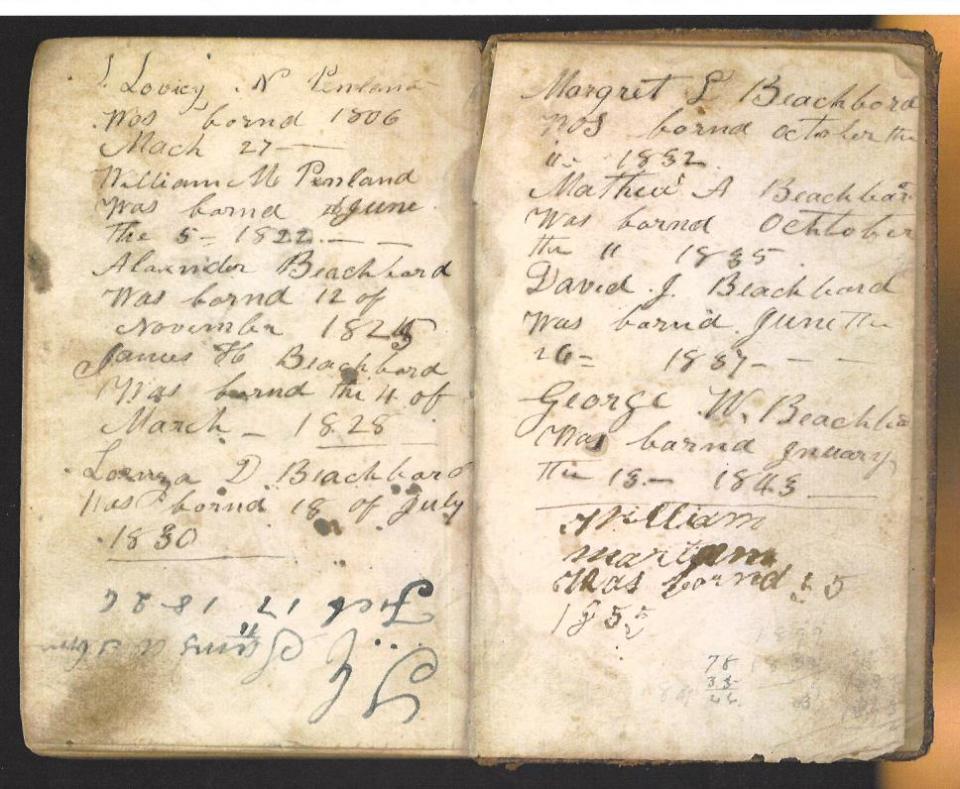 Lovicy N Penland
Was bornd 1806
Mach 27
William M Penland
Was bornd June
the 5 = 1822
Beachbord
Was bornd 12 of
November 182
James H Beachbord
Was bornd the 4 of
March 1828
D Beachbord
Was bornd 18 of July
1830
Feb 17 18
Margret L Beachbord
Was bornd october the
11 1832
A Beachbor
Was bornd Ochtober
the 11 1835
David J. Beachbord
Was bornd June the
26 = 1837
George W. Beachbo
Was barnd Jnuary
the 13 1843
William
Was bornd 5
185
78
33